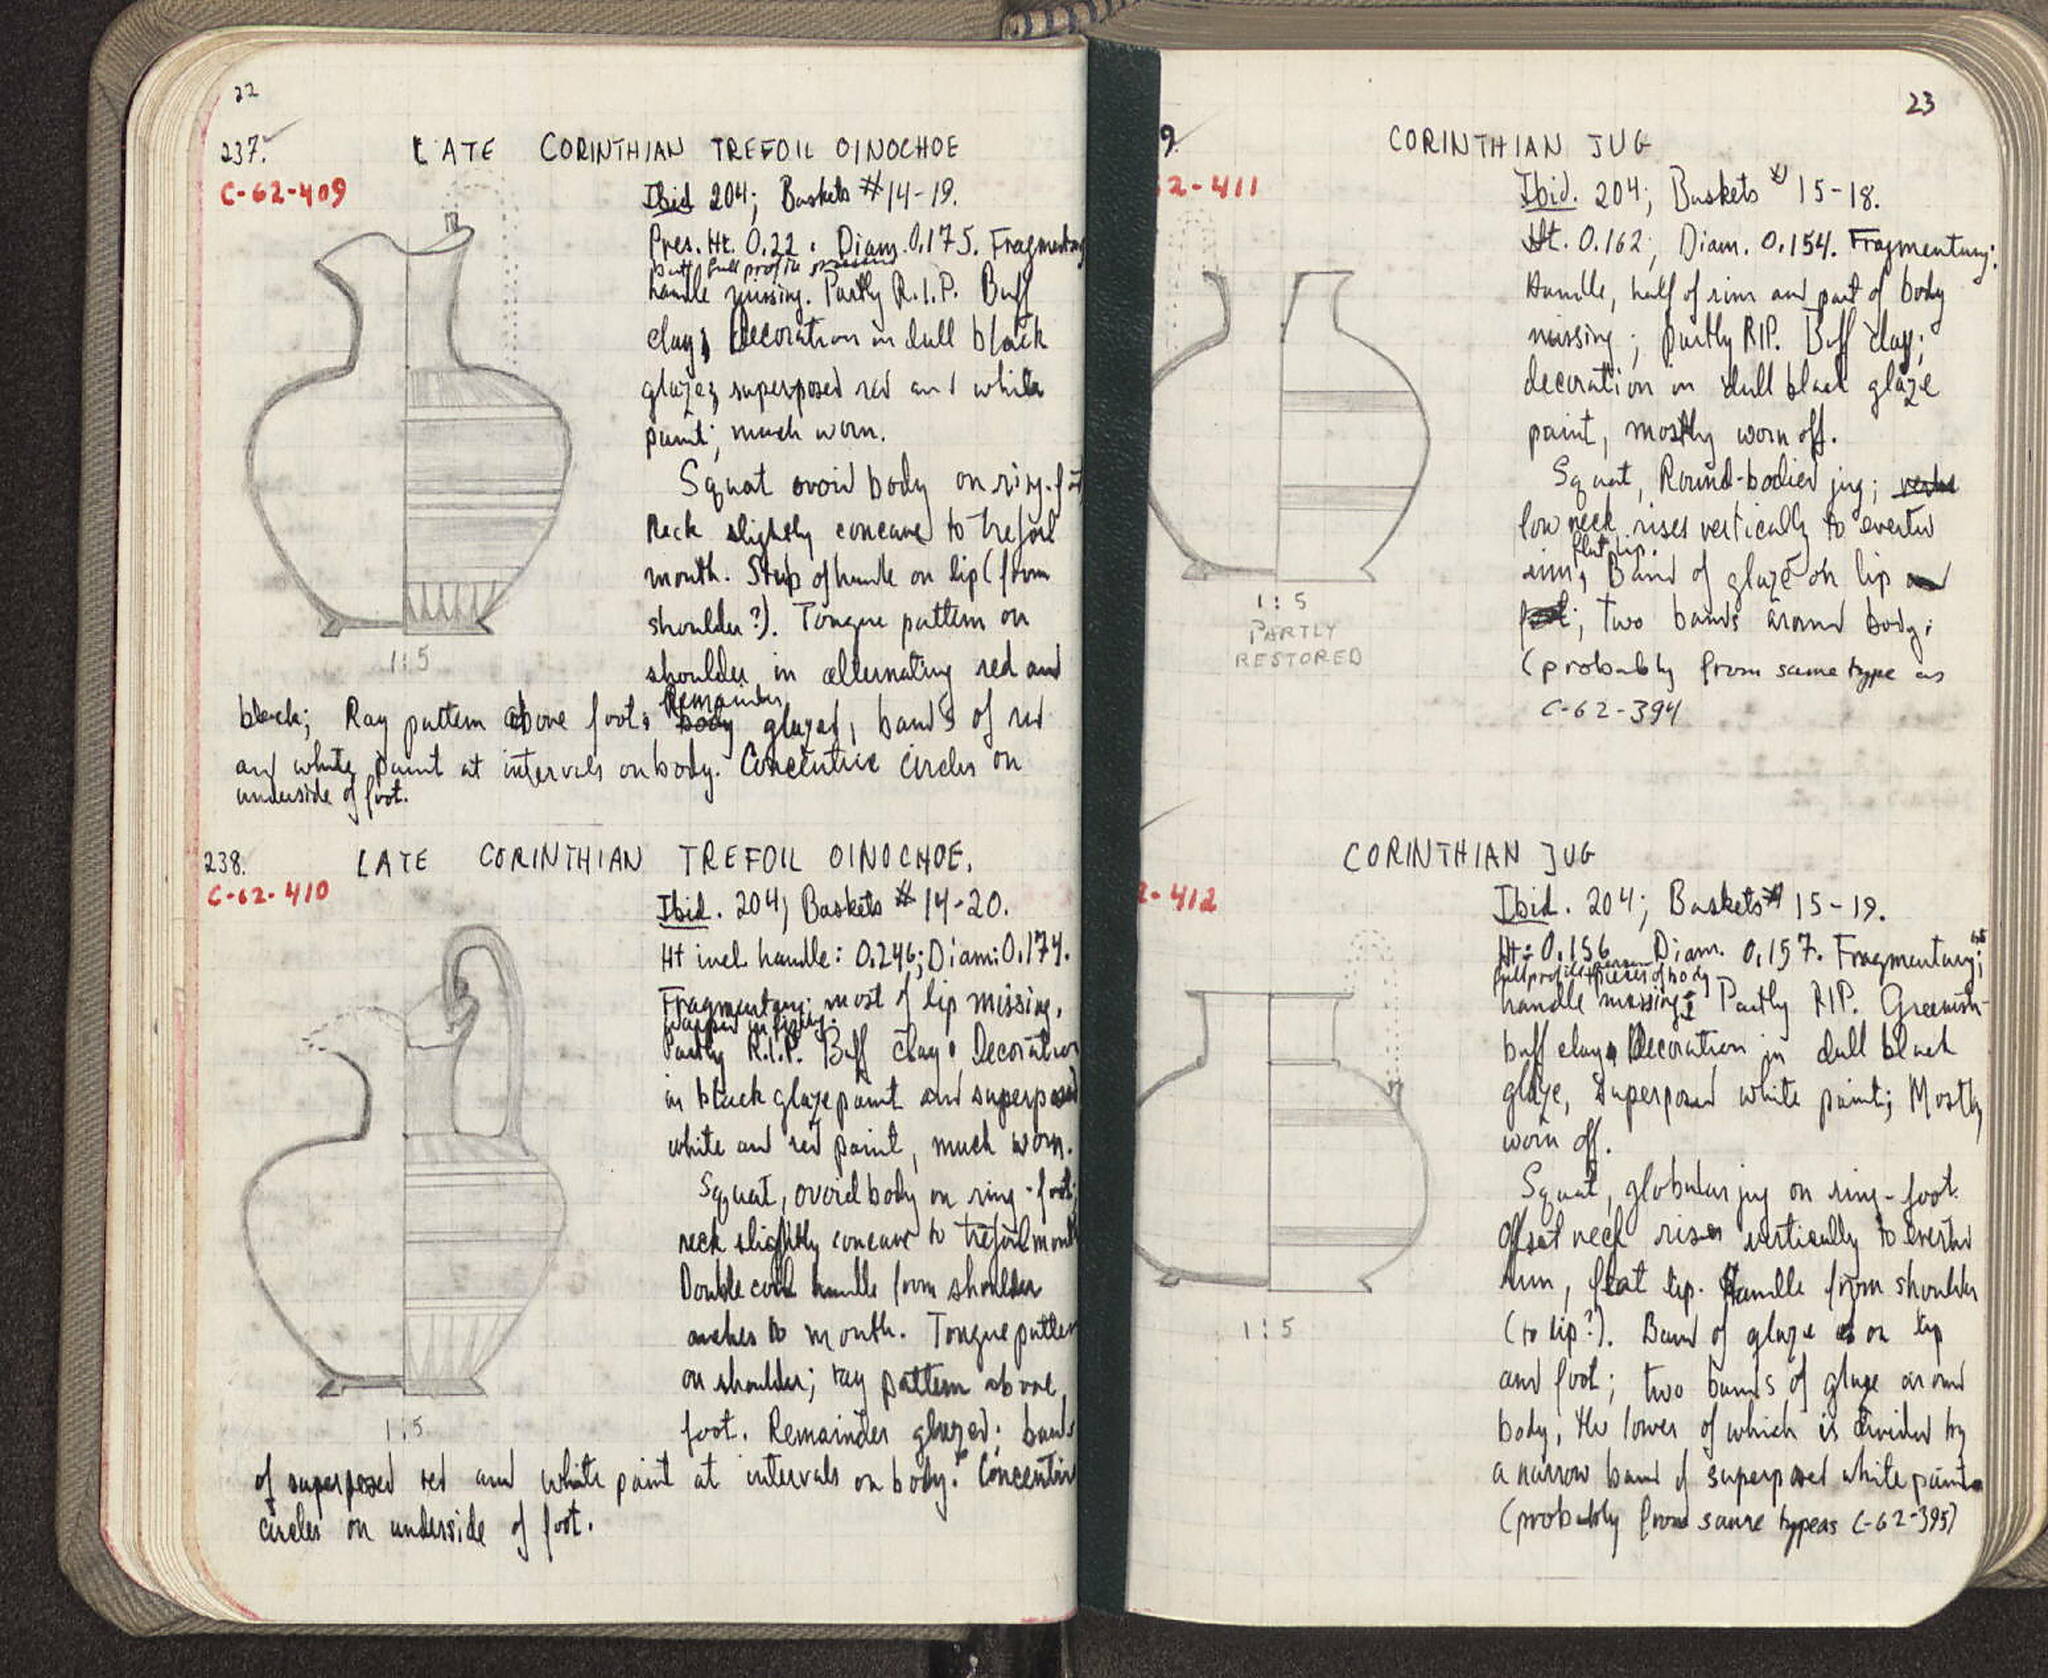 22
237.
LATE CORINTHIAN TREFOIL OINOCHOE
C-62-409
Ibid 204; Baskets # 14-19.
Pres. Ht. 0.22. Diam. 0.175. Fragmentary
but full profile preserved
handle missing. Partly R.I.P. Buff
clay; Decoration in dull black
glaze; superposed red and white
paint; much worn.
Squat ovoid body on ring-foot
Neck slightly concave to trefoil
mouth. Stub of handle on lip (from
shoulder?). Tongue pattern on
shoulder in alternating red and
1:5
Remainder
black; Ray pattern above foot; body glazed, bands of red
and white paint at intervals on body. Concentric circles on
underside of foot.
238.
LATE CORINTHIAN TREFOIL OINOCHOE.
C-62-410
Ibid. 204; Baskets # 14-20.
Ht incl. handle: 0.246; Diam: 0.174.
Fragmentary: most of lip missing.
warped in firing.
Partly R.I.P. Buff clay. Decoration
in black glaze paint and superposed
white and red paint, much worn.
Squat, ovoid body on ring-foot;
neck slightly concave to trefoil mouth
Double coil handle from shoulder
arches to mouth. Tongue pattern
on shoulder; ray pattern above
foot. Remainder glazed; bands
1:5
of superposed red and white paint at intervals on body. Concentric
circles on underside of foot.
23
9.
CORINTHIAN JUG
62-411
Ibid. 204; Baskets # 15-18.
Ht. 0.162; Diam. 0.154. Fragmentary:
Handle, half of rim and part of body
missing; partly RIP. Buff clay;
decoration in dull black glaze
paint, mostly worn off.
Squat, Round-bodied jug;
low neck rises vertically to everted
flat lip.
rim, Band of glaze on lip and
foot; two bands around body;
(probably from same type as
C-62-394
1:5
PARTLY
RESTORED
CORINTHIAN JUG
2-412
Ibid. 204; Baskets # 15-19.
Ht: 0.156 Diam. 0.157. Fragmentary; but
full profile pieces of body
handle missing; Partly RIP. Greenish-
buff clay; Decoration in dull black
glaze, superposed white paint; Mostly
worn off.
Squat, globular jug on ring-foot.
Offset neck rises vertically to everted
rim, flat lip. Handle from shoulder
(to lip?). Band of glaze on lip
and foot; two bands of glaze around
body, the lower of which is divided by
a narrow band of superposed white paint
(probably from same type as C-62-395)
1:5